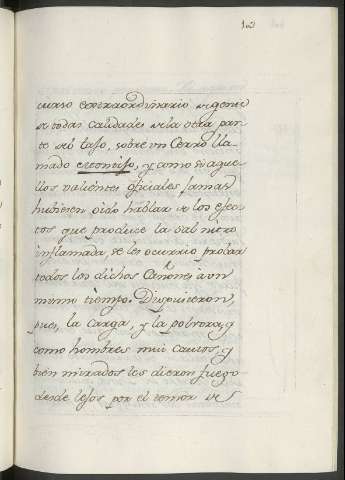 curso extraordinario de gente
de todas calidades de la otra par-
te del lago, sobre un Cerro lla-
mado, y como aque-
llos valientes oficiales jamas
hubiesen oido hablar de los efec-
tos que produce la sal nitro
inflamada, se les ocurrio probar
todos los dichos Cañones à un
mismo tiempo. Dispusieron,
pues, la carga, y la polvora, y
como hombres mui cautos, y
bien mirados les dieron fuego
desde lejos por el temor de